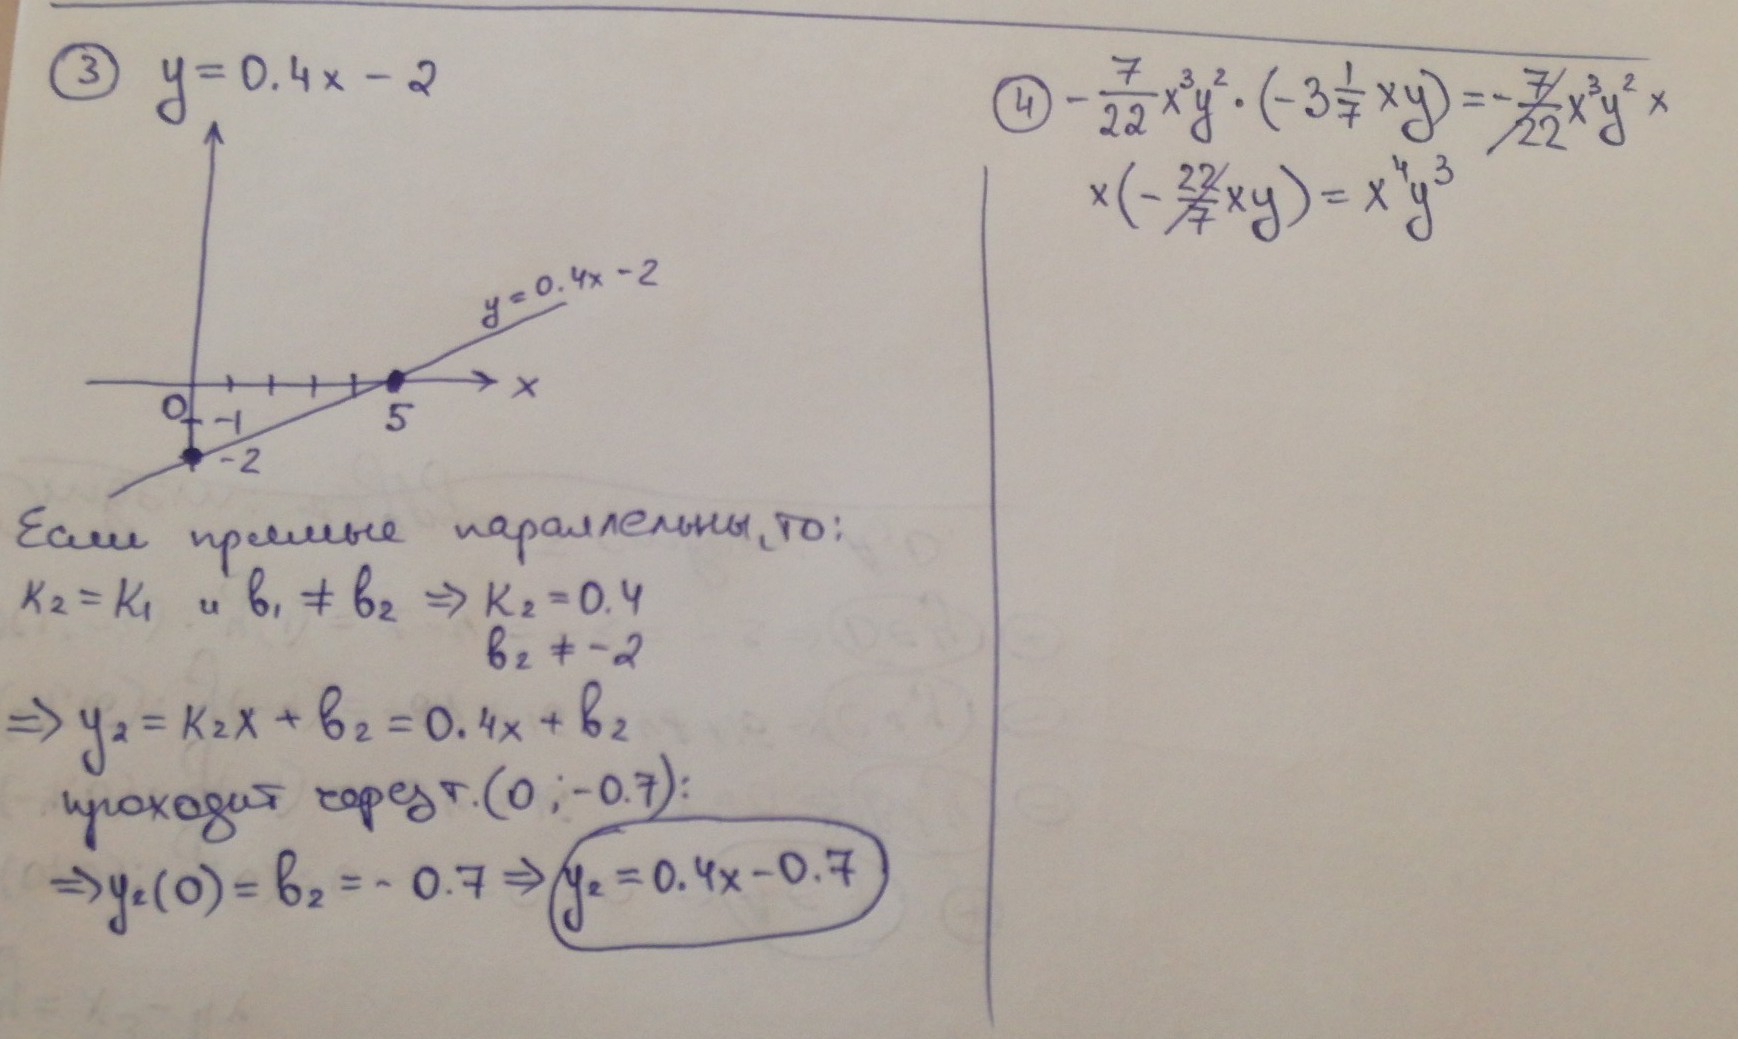 ③ y = 0.4x - 2
y = 0.4x - 2
x
0
-1
5
-2
Если прямые параллельны, то:
K₂ = K₁ и b₁ ≠ b₂ ⇒ K₂ = 0.4
b₂ ≠ -2
⇒ y₂ = K₂x + b₂ = 0.4x + b₂
проходит через т. (0 ; -0.7):
⇒ y₂(0) = b₂ = - 0.7 ⇒ y₂ = 0.4x - 0.7
④ - 7/22 x³y² · (-3 1/7 xy) = - 7/22 x³y² ×
× (- 22/7 xy) = x⁴y³